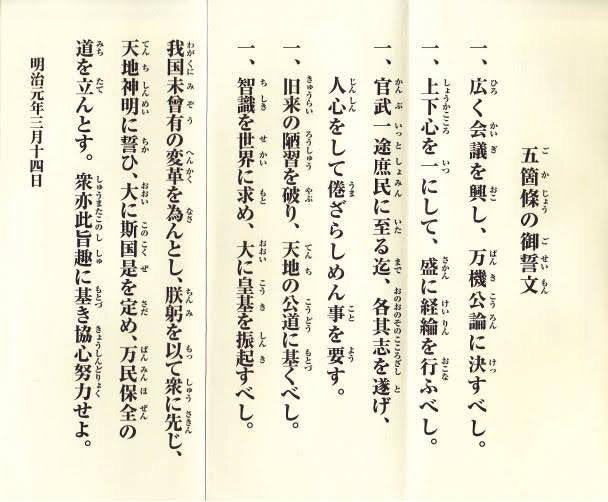 五箇條の御誓文
一、広く会議を興し、万機公論に決すべし。
一、上下心を一にして、盛に経綸を行ふべし。
一、官武一途庶民に至る迄、各其志を遂げ、
人心をして倦ざらしめん事を要す。
一、旧来の陋習を破り、天地の公道に基くべし。
一、智識を世界に求め、大に皇基を振起すべし。
我国未曾有の変革を為んとし、朕躬を以て衆に先じ、
天地神明に誓ひ、大に斯国是を定め、万民保全の
道を立んとす。衆亦此旨趣に基き協心努力せよ。
明治元年三月十四日